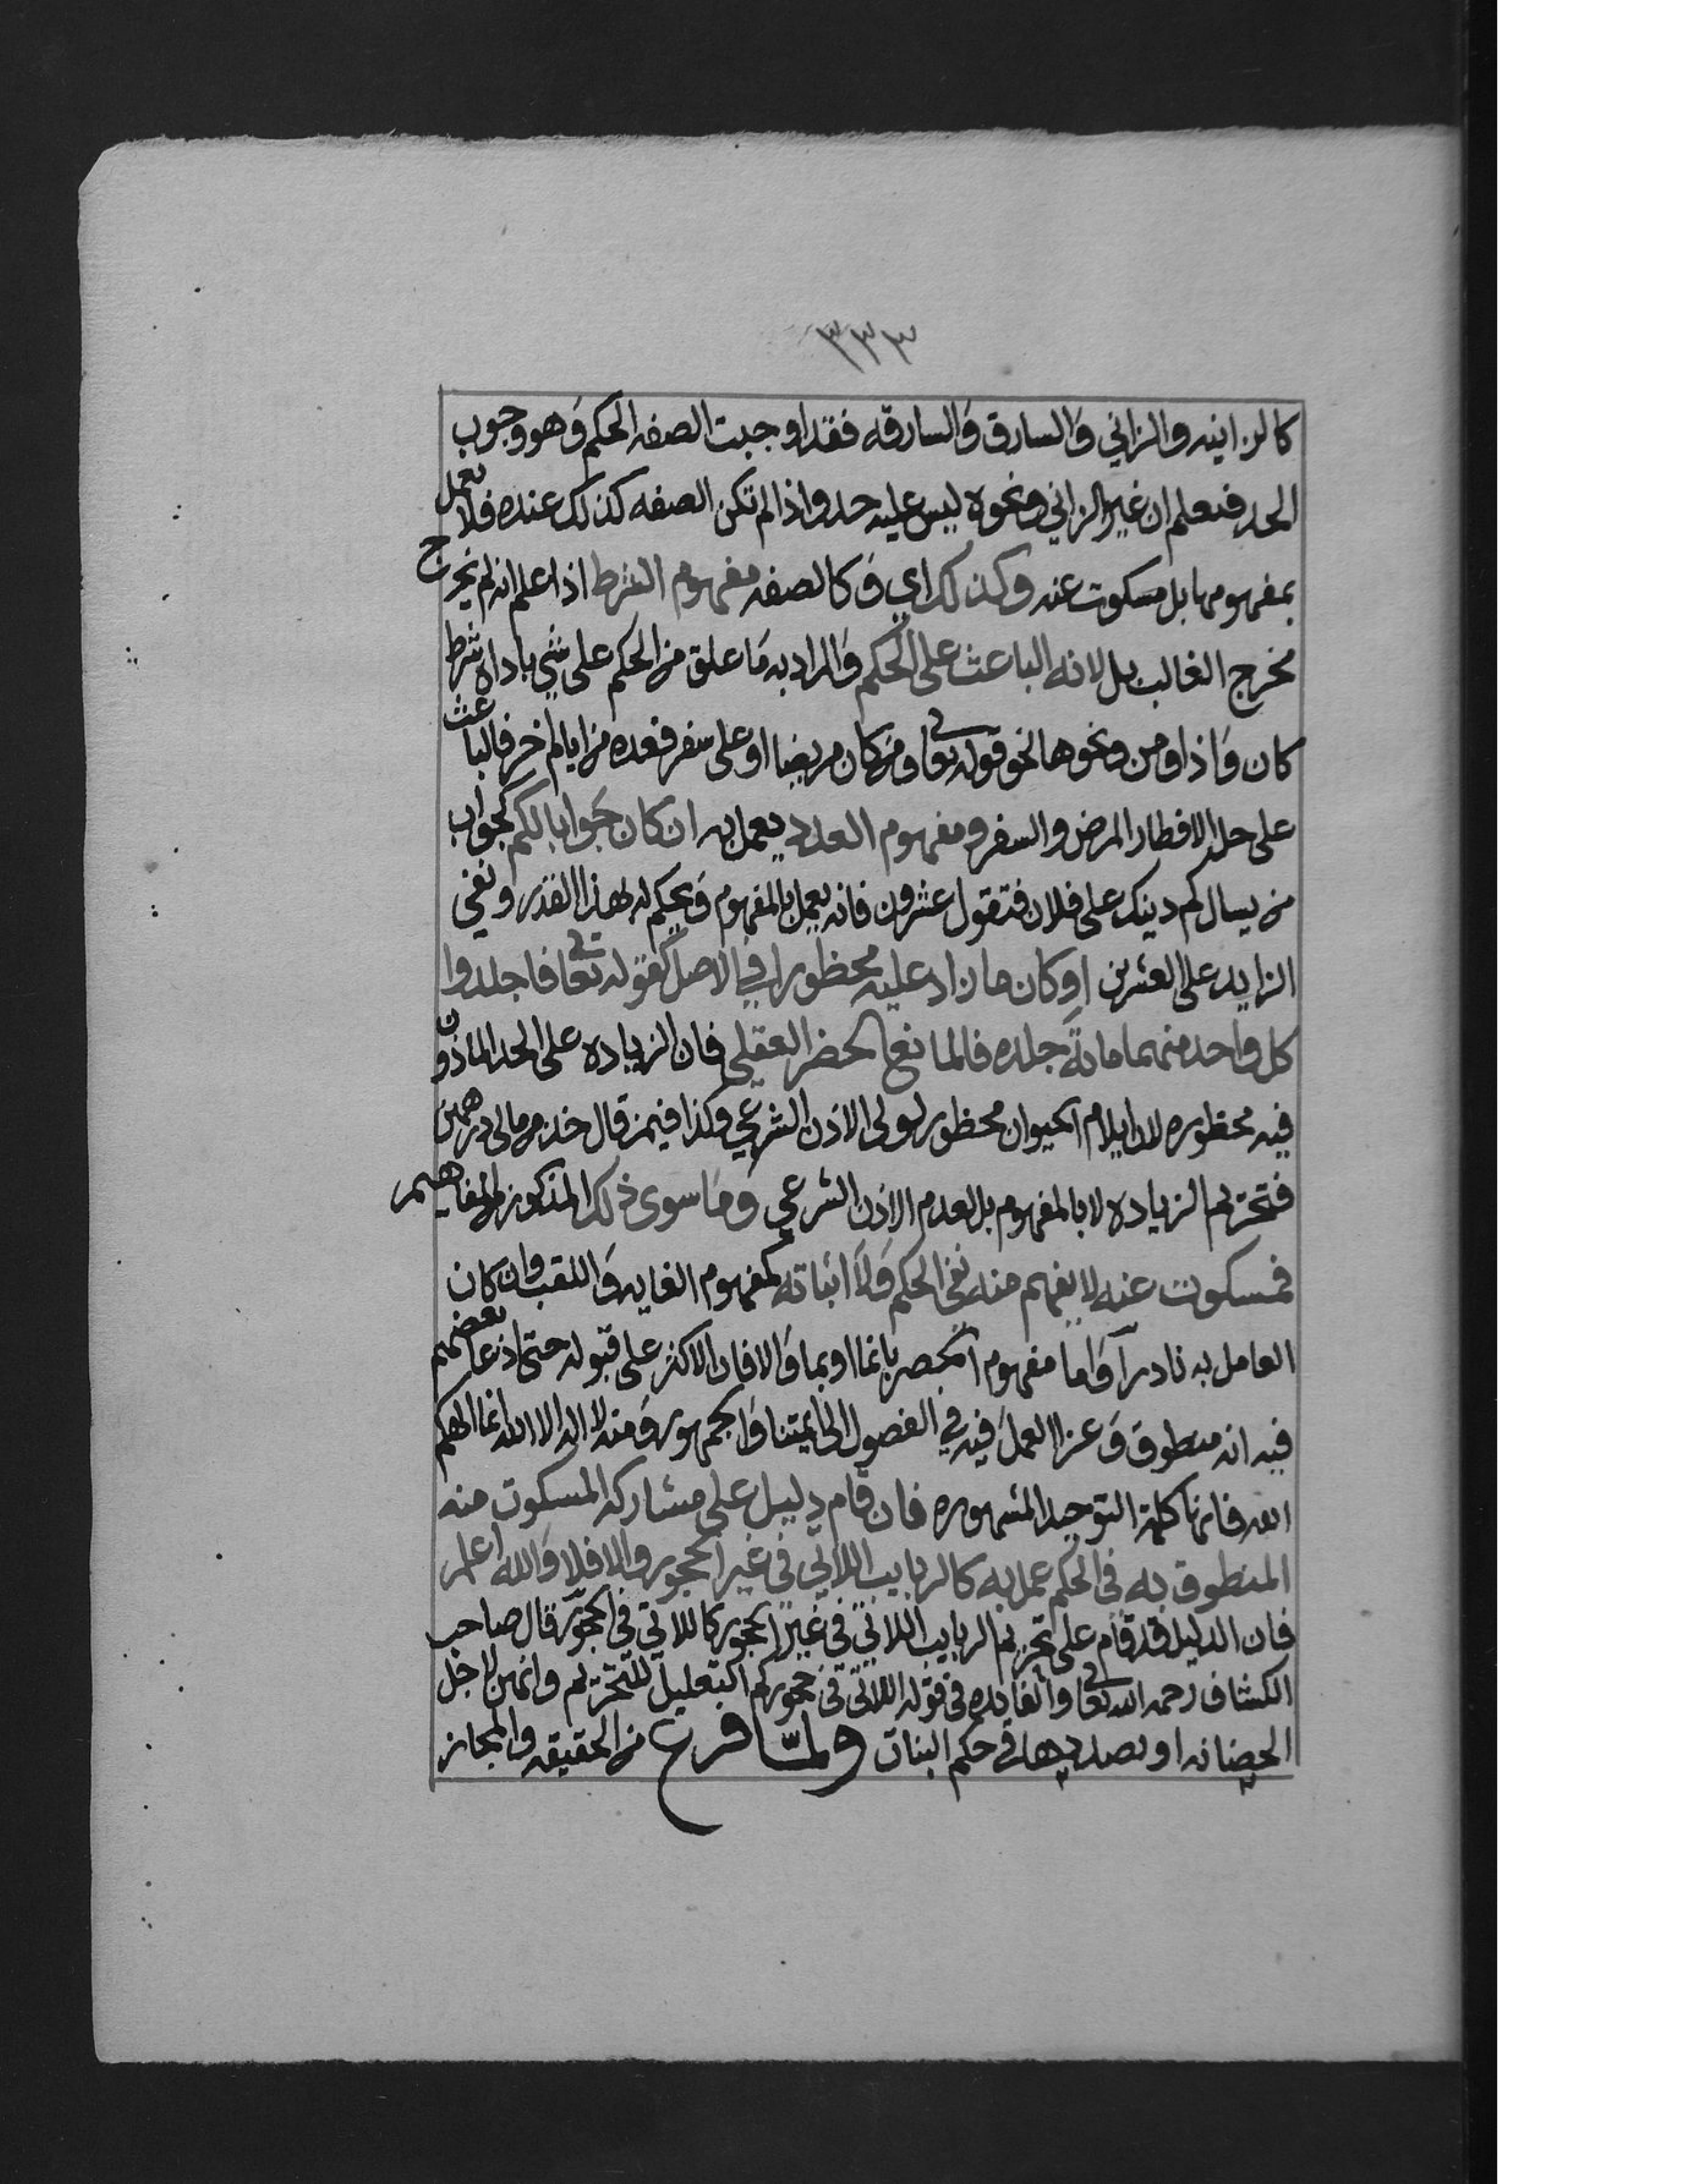 ٣٣٣
كالزانيه والزاني والسارق والسارقه فقد اوجبت الصفه الحكم وهو وجوب
الحد فنعلم ان غير الزاني ونحوه ليس عليه حد واذا لم تكن الصفه كذلك عنده فلا نعمل
بمفهومها بل مسكوت عنه وكذلك اي وكالصفه مفهوم الشرط اذا علم انه لم يخرج
مخرج الغالب بل لانه الباعث على الحكم والمراد به ما علق من الحكم على شي باداه شرط
كان واذا ومن ونحوها نحو قوله تعا ومن كان مريضا او على سفر فعده من ايام اخر فالباعث
على حل الافطار المرض والسفر ومفهوم العدد يعمل به ان كان جوابا لكم كجواب
من يسال كم دينك على فلان فتقول عشرون فانه يعمل بالمفهوم ويحكم له بهذا القدر ونفي
الزايد على العشرين او كان ما زاد عليه محظورا في الاصل كقوله تعا فاجلدوا
كل واحد منهما مائة جلده فالمانع الحضر العقلي فان الزياده على الحد الماذون
فيه محظوره لان ايلام الحيوان محظور لولى الاذن الشرعي وكذا فيمن قال خذ من مالي درهمين
فتحريم الزياده لا بالمفهوم بل لعدم الاذن الشرعي وما سوى ذلك المذكور من المفاهيم
فمسكوت عنه لا يفهم منه نفي الحكم ولا اثباته كمفهوم الغايه واللقب وان كان
العامل به نادرا واما مفهوم الحصر بانما او بما والا فان الاكثر على قبوله حتى ادعا بعضهم
فيه انه منطوق وعزا العمل فيه في الفصول الى ائمتنا والجمهور ومنه لا اله الا الله انما الهكم
الله فانها كلمة التوحيد المشهوره فان قام دليل على مشاركه المسكوت منه
المنطوق به في الحكم عمل به كالربايب اللاتي في غير الحجور والا فلا والله اعلم
فان الدليل قد قام على تحريم الربايب اللاتي في غير الحجور كاللاتي في الحجور قال صاحب
الكشاف رحمه الله تعا والفايده في قوله اللاتي في حجوركم التعليل للتحريم وانهن لاجل
الحضانه او بصددها في حكم البنات ولمّا فرغ من الحقيقه والمجاز